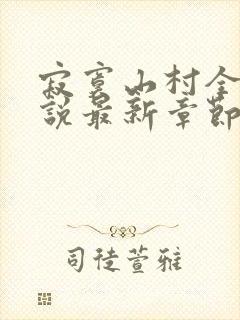 寂寞山村全
說最新章節
司徒萱雅